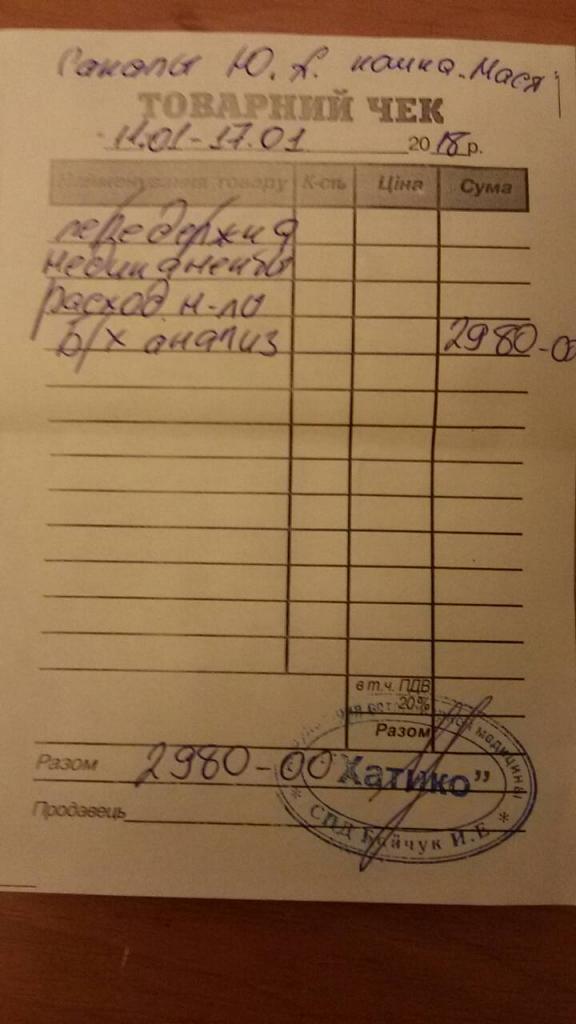 Ю. А. кошка. Мася
ТОВАРНИЙ ЧЕК
11.01-17.01 2018 р.
Найменування товару К-сть Ціна Сума
передержка
медикаменты
расход. м-лы
б/х анализ 2980-00
в т.ч. ПДВ
20%
Разом
Разом 2980-00
Продавець
медицины
"Хатико"
* СПД Байчук И.Е *